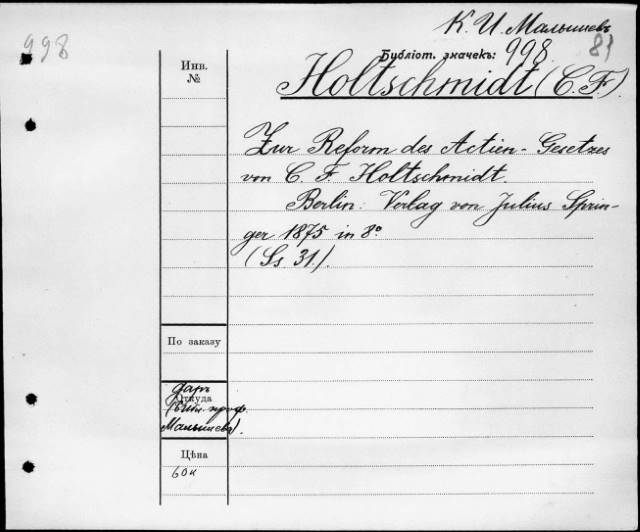 К. И. Малышевъ
998
81
Библіот. значекъ: 998.
Инв.
№
Holtschmidt (C. F.)
Zur Reform des Actien-Gesetzes
von C. F. Holtschmidt.
Berlin: Verlag von Julius Sprin-
ger 1875 in 8°
(Ss. 31.)
По заказу
даръ
Откуда
(Библ. проф.
Малышева).
Цѣна
60 к